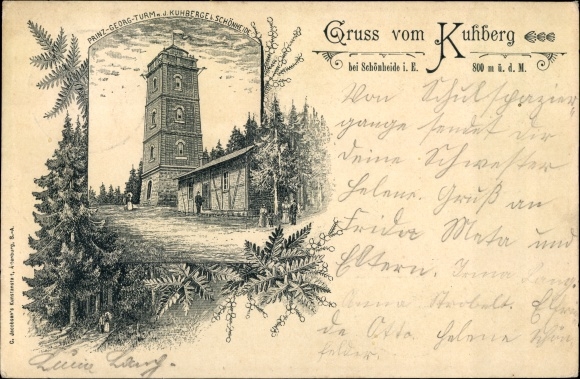 PRINZ-GEORG-TURM A. D. KUHBERGE b. SCHÖNHEIDE.
Gruss vom Kuhberg
bei Schönheide i. E. 800 m ü. d. M.
Von Schulspazier-
gange sendet dir
deine Schwester
Helene. Gruß an
Frida Meta und
Eltern. Irma Lang.
Anna Strobelt. Elfrie-
de Otto. Helene Schön-
felder.
C. Jacobsen's Kunstanstalt, Altenburg, S.-A.
Lang.